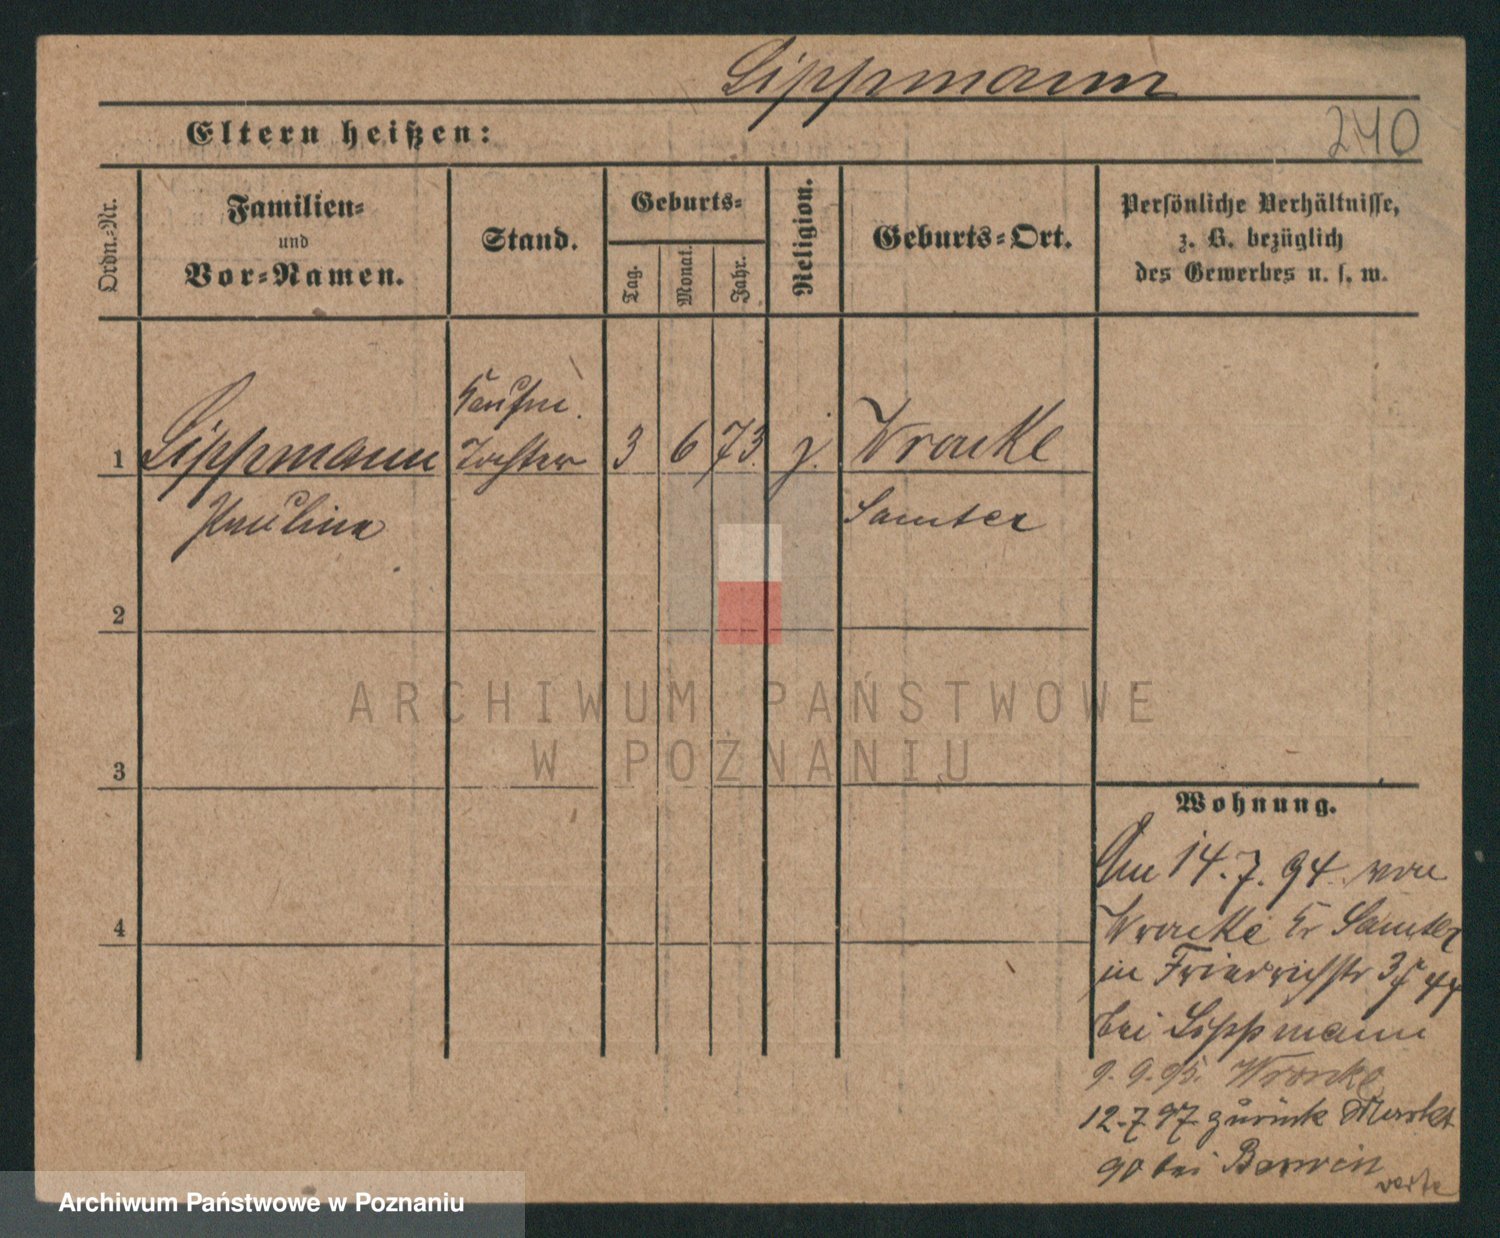 Lippmann
240
Eltern heißen:
Ordn.-Nr.
Familien-
und
Vor-Namen.
Stand.
Geburts-
Tag.
Monat.
Jahr.
Religion.
Geburts-Ort.
Persönliche Verhältnisse,
z. B. bezüglich
des Gewerbes u. s. w.
Kaufm.
1 Lippmann Tochter 3 6 73. j. Wronke
Paulina Samter
2
3
4
ARCHIWUM PAŃSTWOWE
W POZNANIU
Wohnung.
Am 14.7.94 von
Wronke Kr Samter
in Friedrichstr
bei Lippmann
9.9.95. Wronke
12.7.97 zurück Markt
90 bei Berwin
verte
Archiwum Państwowe w Poznaniu